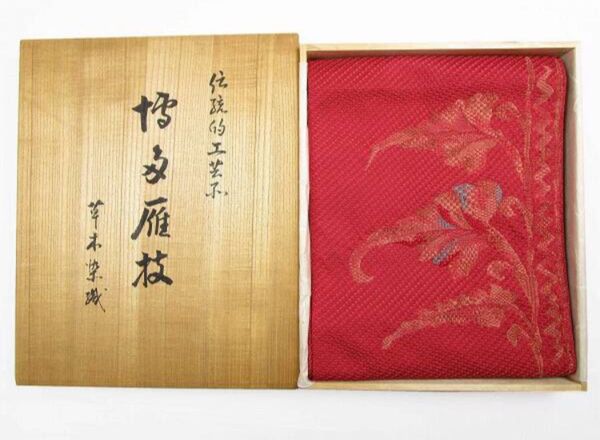 伝統的工芸品
博多雁枝
草木染織